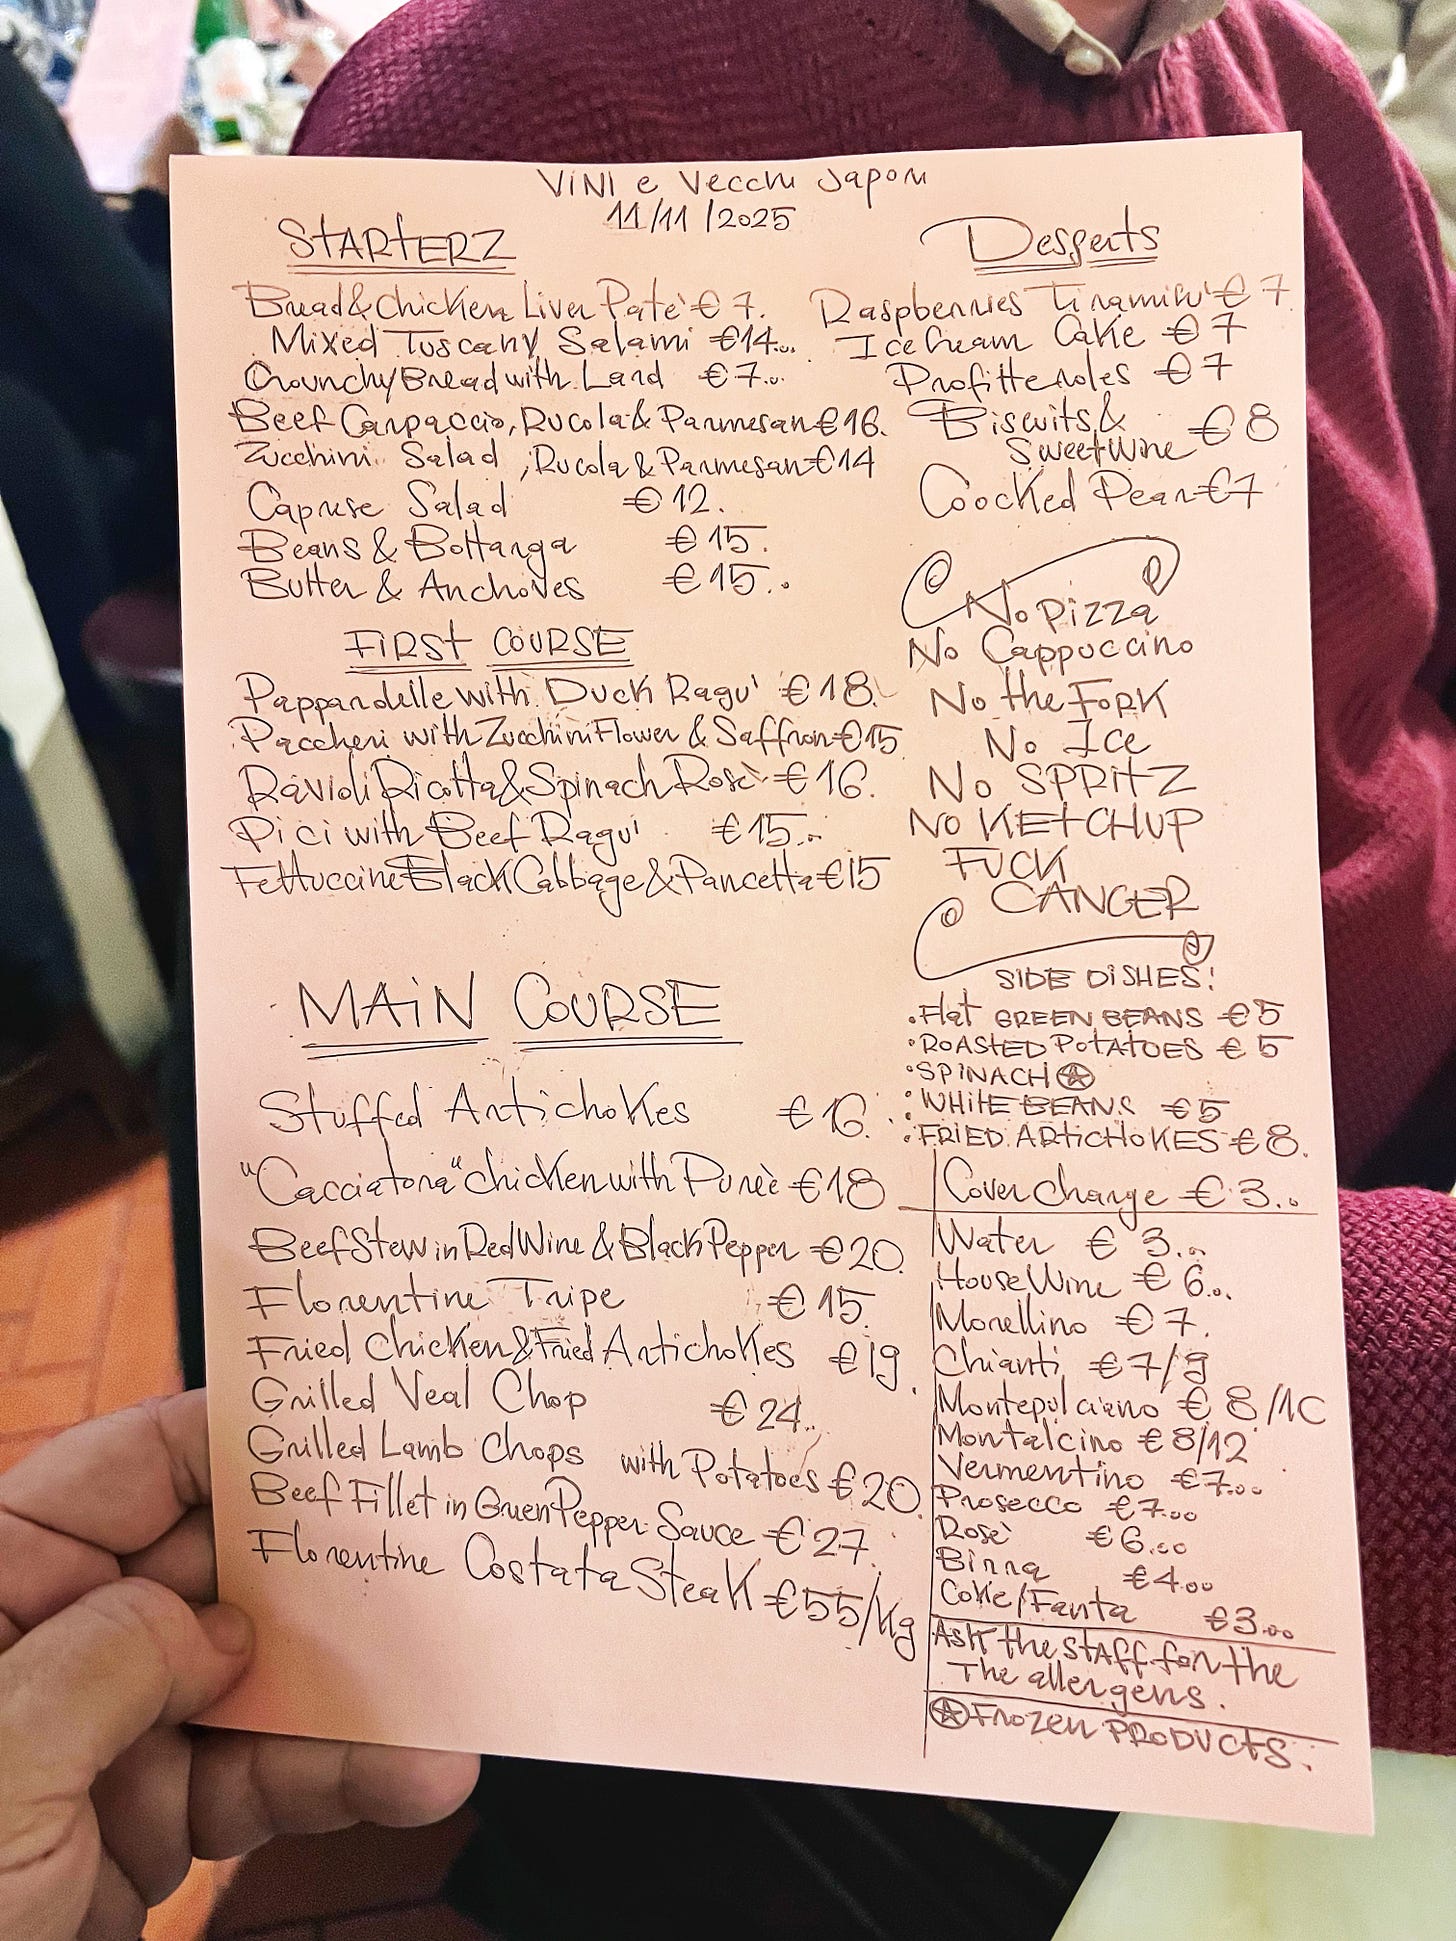 Vini e Vecchi Sapori
11/11/2025
STARTERZ
Bread & Chicken Liver Patè €7.
Mixed Tuscany Salami €14..
Crounchy Bread with Lard €7..
Beef Carpaccio, Rucola & Parmesan €16.
Zucchini Salad, Rucola & Parmesan €14
Caprese Salad €12.
Beans & Bottarga €15.
Butter & Anchoves €15..
FIRST COURSE
Pappardelle with Duck Ragu' €18.
Paccheri with Zucchini Flower & Saffron €15
Ravioli Ricotta & Spinach Rosè €16.
Pici with Beef Ragu' €15..
Fettuccine Black Cabbage & Pancetta €15
MAIN COURSE
Stuffed Antichokes €16.
"Cacciatora" chicken with Pureè €18
Beef Stew in Red Wine & Black Pepper €20.
Florentine Tripe €15.
Fried Chicken & Fried Artichokes €19.
Grilled Veal Chop €24..
Grilled Lamb Chops with Potatoes €20.
Beef Fillet in Green Pepper Sauce €27.
Florentine Costata Steak €55/kg
Desserts
Raspberries Tiramisu' €7
Ice Cream Cake €7
Profitteroles €7
Biscuits &
Sweet Wine €8
Coocked Pear €7
No Pizza
No Cappuccino
No the FORK
No Ice
No SPRITZ
NO KETCHUP
FUCK
CANCER
SIDE DISHES:
• Flat GREEN BEANS €5
• ROASTED POTATOES €5
• SPINACH ⍟
• WHITE BEANS €5
• FRIED ARTICHOKES €8.
Cover Charge €3..
Water €3..
House Wine €6..
Morellino €7.
Chianti €7/9
Montepulciano €8/10
Montalcino €8/12
Vermentino €7.00
Prosecco €7.00
Rosè €6.00
Birra €4.00
Coke/Fanta €3.00
Ask the staff for the
The allergens.
⍟ Frozen PRODUCTS.